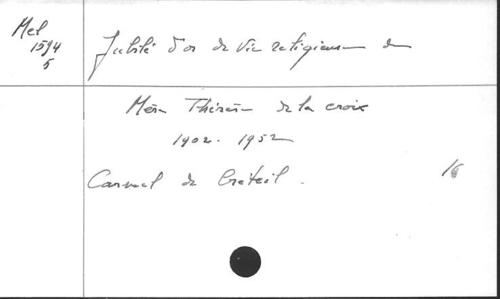 Mel
1594
5
Jubilé d'or de vie religieuse de
Mère Thérèse de la croix
1902 - 1952
Carmel de Créteil.
16